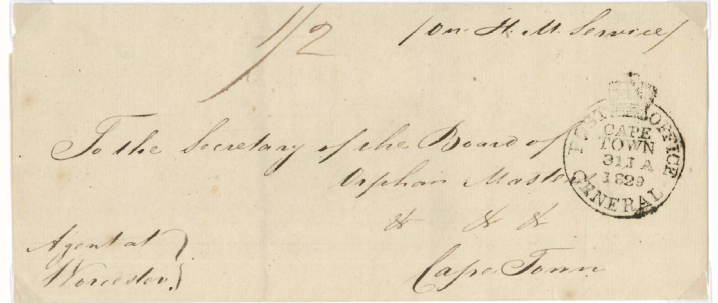 1/2
/On H. M. Service/
To the Secretary of the Board of
Orphan Masters
& & &
Cape Town
Agent at }
Worcester }
POST OFFICE
CAPE
TOWN
31 JA
1829
GENERAL